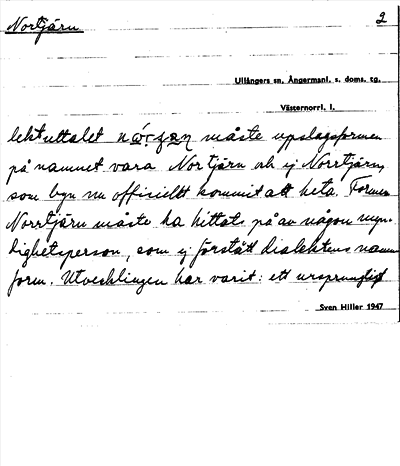 Nortjärn
2
Ullångers sn. Ångermanl. s. doms. tg.
Västernorrl. l.
lektuttalet måste uppslagsformen
på namnet vara Nortjärn och ej Norrtjärn,
som byn nu officiellt kommit att heta. Formen
Norrtjärn måste ha hittats på av någon myn-
dighetsperson, som ej förstått dialektens namn
form. Utvecklingen har varit: ett ursprungligt
Sven Hiller 1947